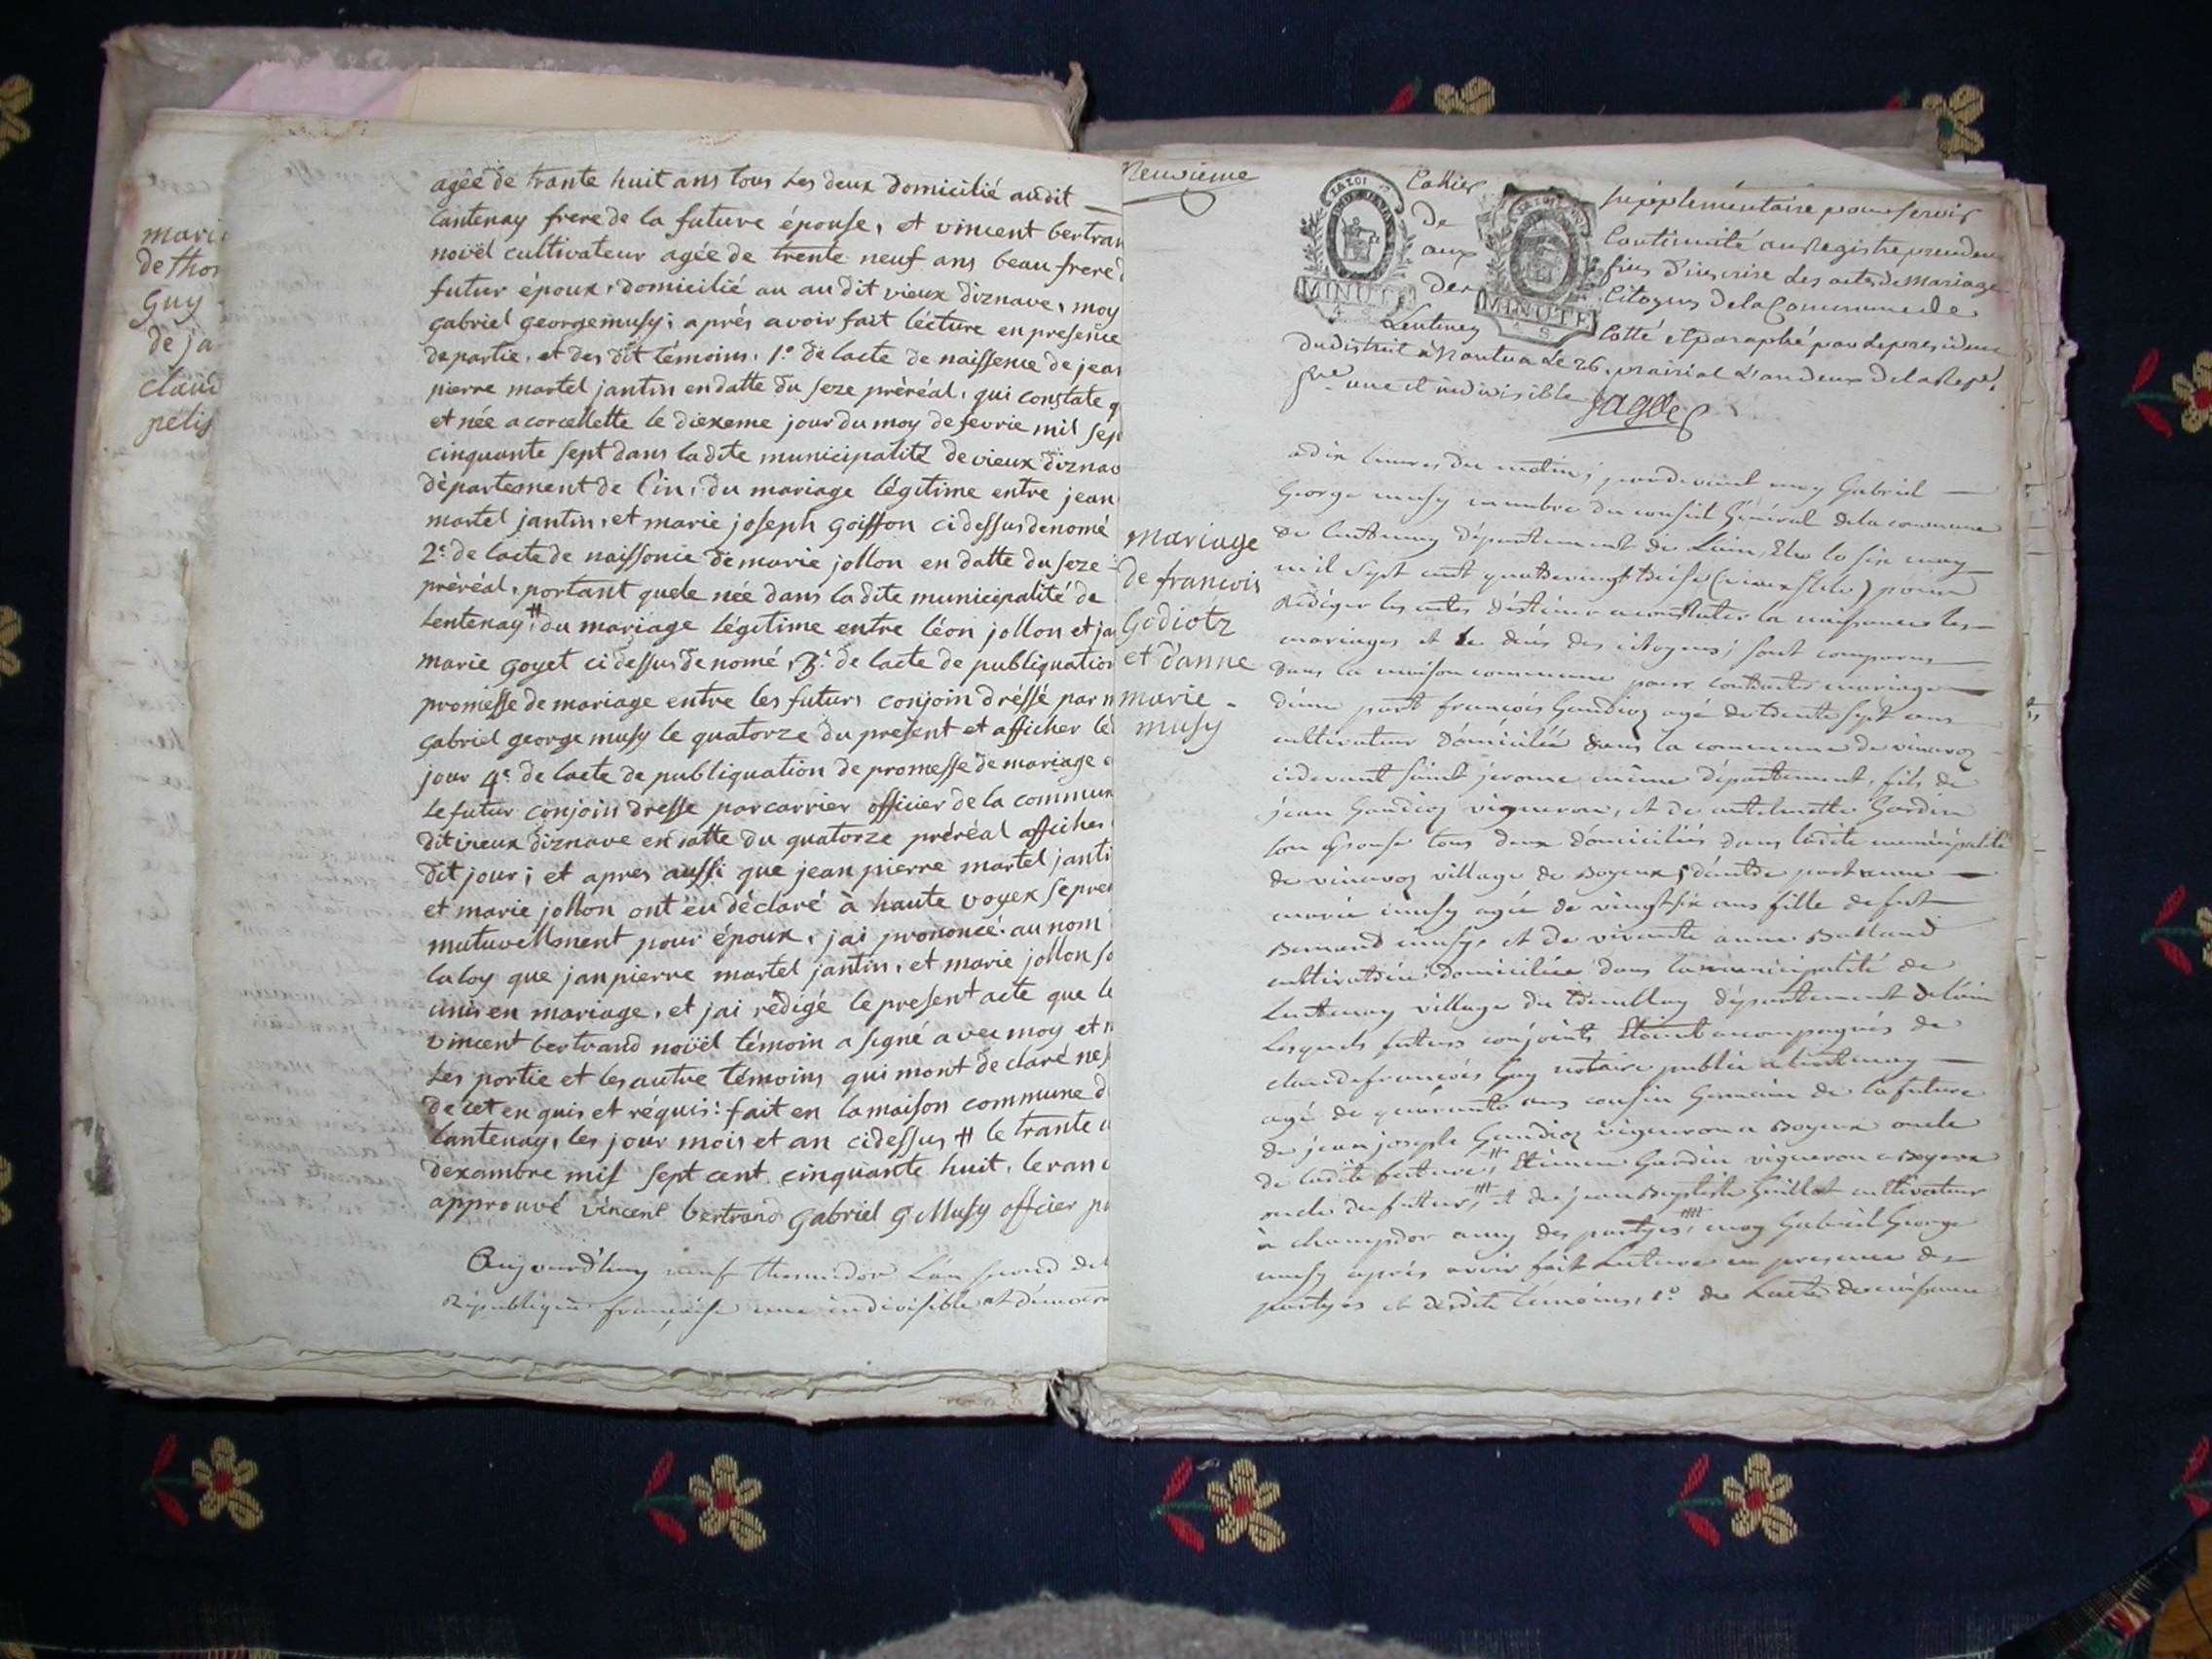 mari
de tho
Guy
de ja
claud
pelis
agée de trante huit ans tous les deux domicilié audit
lantenay frere de la future épouse, et vincent bertran
novël cultivateur agée de trente neuf ans beau frere
futur époux, domicilié au au dit vieux diznave, moy
gabriel george musy; aprés avoir fait lécture en presence
de partie, et des dit témoins, 1.° de lacte de naissence de jean
pierre martel jantin en datte du seze préréal, qui constate q
et née a corcellette le diexeme jour du moy de fevrie mil sep
cinquante sept dans ladite municipalité de vieux diznav
département de l'in, du mariage légitime entre jean
martel jantin, et marie joseph goiffon ci dessus denomé
2.° de lacte de naissonce de marie jollon en datte du seze
préréal, portant quele née dans ladite municipalité de
Lentenay # du mariage légitime entre léon jollon et ja
marie goyet ci dessus de nomé, 3.° de lacte de publiquation
promesse de mariage entre les futurs conjoin dréssé par m
gabriel george musy le quatorze du present et afficher le
jour 4.e de lacte de publiquation de promesse de mariage
Le futur conjoin dresse par carrier officier de la commun
dit vieux diznave en datte du quatorze préréal afficher
dit jour; et apres aussi que jean pierre martel janti
et marie jollon ont ëu déclaré à haute voyex se pren
mutuvellement pour époux, jai prononcé au nom
la loy que jan pierre martel jantin, et marie jollon so
unis en mariage, et jai rédigé le present acte que le
vincent bertrand novël témoin a signé avec moy et n
Les portie et les autre témoins qui mont de claré ne s
de cet en quis et réquis: fait en la maison commune d
lantenay, les jour mois et an cidessus # le trante u
dexambre mil sept cent cinquante huit, le ran
approuvé vincent bertrand gabriel G Musy officier pu
Aujourd'huy neuf thermidor L'an second de l
République françaisse une indivisible et démocra
Neuvieme
Cahier supplémentaire pour servir
de Continuité au Registre
aux fins d'inscrire Les actes de Mariage
des Citoyens de la Commune de
Lentenay Cotté et paraphé par Le president
du district à Nantua Le 26. prairial L'an deux de la Rep.
une et indivisible
mariage
de francois
Godiotz
et d'anne
marie
musy
a dix heures du matin; pardevant moy Gabriel
George musy membre du conseil Général de la commune
de lentenay département de Lain, Elu le six may
mil sept cent quatrevingt treise (vieux stile) pour
rédiger les actes déstinés a constater la naissance les
mariages et le décés des citoyens; sont comparus
dans la maison commune pour contracter mariage
d'une part francois Gaudioz agé de trente sept ans
cultivateur domicilié dans la commune de
cidevant saint jerome même département, fils de
jean Gaudioz vigneron, et de Gardin
son épouse tous deux domiciliés dans ladite municipalité
de village de Boyeux; d'autre part anne
marie musy agée de vingt six ans fille de fut
Bernard musy, et de vivante anne
cultivatrice domiciliée dans la municipalité de
Lentenay village du département de l'ain
Lesquels futurs conjoints Etoint acompagnés de
claude francois Guy notaire public a lentenay
agé de quarante ans cousin Germain de la future
de jean joseph Gaudioz vigneron a Boyeux oncle
de ladite future, # Etienne Gardin vigneron a Boyeux
oncle du futur, et de jean Baptiste Guillot cultivateur
à champdor amy des partyes, moy Gabriel George
musy aprés avoir fait Lecture en presence des
partyes et desdits témoins, 1.° de Lacte de naissance
MINUTE
MINUTE